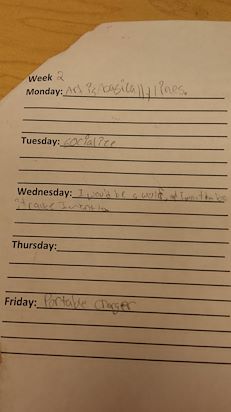 Week 2
Monday: Art is basically lines.
Tuesday: socialize
Wednesday: I would be a world, I
Thursday:
Friday: Portable charger